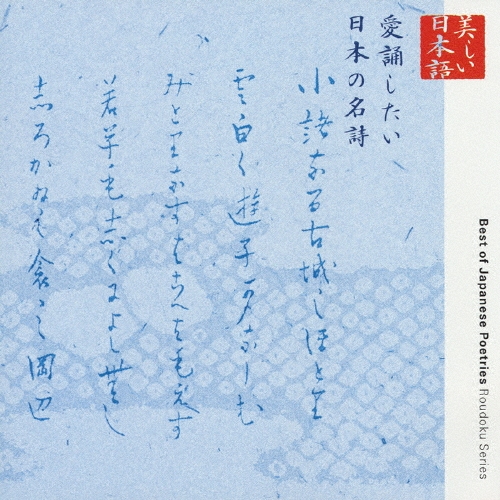 美しい
日本語
愛誦したい
日本の名詩
小諸なる古城のほとり
雲白く遊子かなしむ
みとりなすはこへはもえす
若草もしくによし無し
しろかねの衾の岡辺
Best of Japanese Poetries Roudoku Series